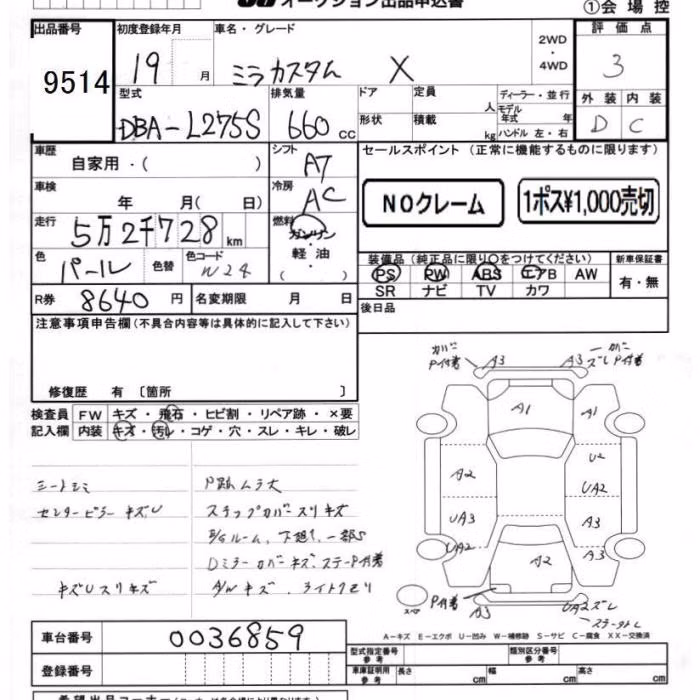 オークション出品申込書 ①会場控
出品番号 9514
初度登録年月 19 月
車名・グレード ミラカスタム X
2WD・4WD
評価点 3
外装 D 内装 C
型式 DBA-L275S
排気量 660 cc
ドア 形状
定員 人 積載 kg
ディーラー・並行
モデル年式 年
ハンドル 左・右
車歴 自家用・( )
シフト A7
セールスポイント (正常に機能するものに限ります)
NOクレーム 1ポス¥1,000売切
車検 年 月( 日)
冷房 AC
走行 5万2千728 km
燃料 ガソリン 軽油 ( )
色 パール 色替 色コード W24
装備品 (純正品に限り○をつけてください)
PS PW ABS エアB AW
SR ナビ TV カワ
新車保証書 有・無
R券 8640 円 名変期限 月 日
後日品
注意事項申告欄(不具合内容等は具体的に記入して下さい)
修復歴 有 〔箇所 〕
検査員記入欄
FW キズ・飛石・ヒビ割・リペア跡・×要
内装 キズ・汚レ・コゲ・穴・スレ・キレ・破レ
シートシミ
センターピラーキズU
キズUスリキズ
P跡ムラ大
ステップカバスリキズ
E/Gルーム、下廻り、一部S
Dミラーカバーキズ、ステーP付着
A/Wキズ、ライトクモリ
カバーP付着 A3 A3 カバーズレP付着
A1 A1
A2 U2
UA2
UA3 A3
UA2 A2 A3
スペア P付着 A3 UA2ズレ
ステータL
A-キズ E-エクボ U-凹み W-補修跡 S-サビ C-腐食 XX-交換済
車台番号 0036859
登録番号
型式指定番号 参考 類別区分番号 参考
車庫証明用 参考 長さ cm 幅 cm 高さ cm